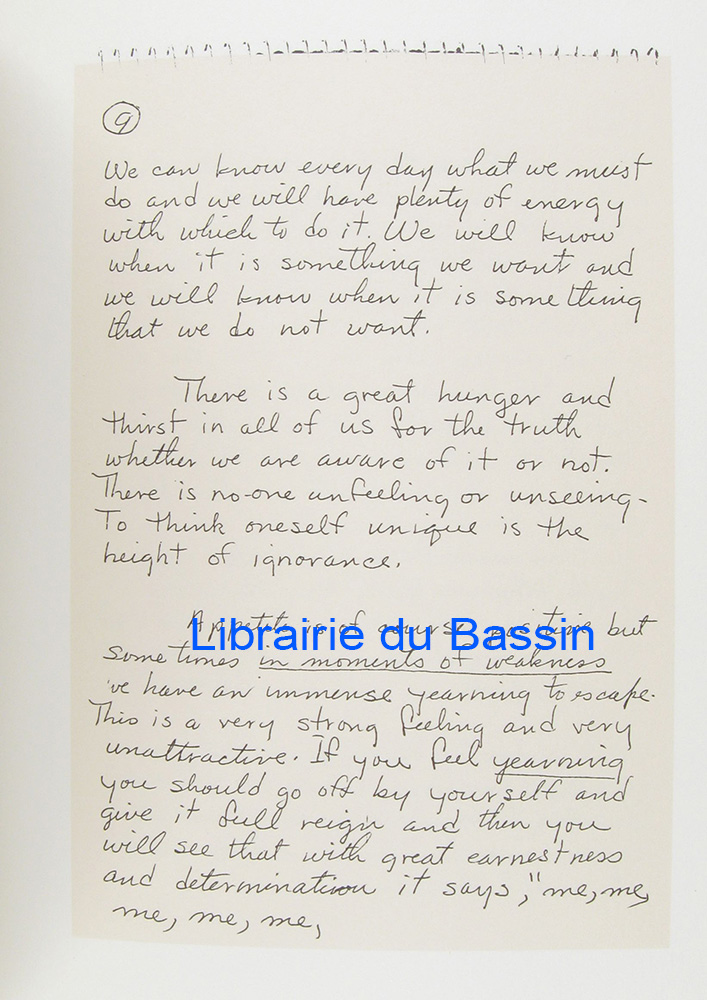 9
We can know every day what we must
do and we will have plenty of energy
with which to do it. We will know
when it is something we want and
we will know when it is something
that we do not want.
There is a great hunger and
thirst in all of us for the truth
whether we are aware of it or not.
There is no-one unfeeling or unseeing-
To think oneself unique is the
height of ignorance.
Appetite is of course positive but
Librairie du Bassin
sometimes in moments of weakness
we have an immense yearning to escape.
This is a very strong feeling and very
unattractive. If you feel yearning
you should go off by yourself and
give it full reign and then you
will see that with great earnestness
and determination it says, "me, me,
me, me, me,